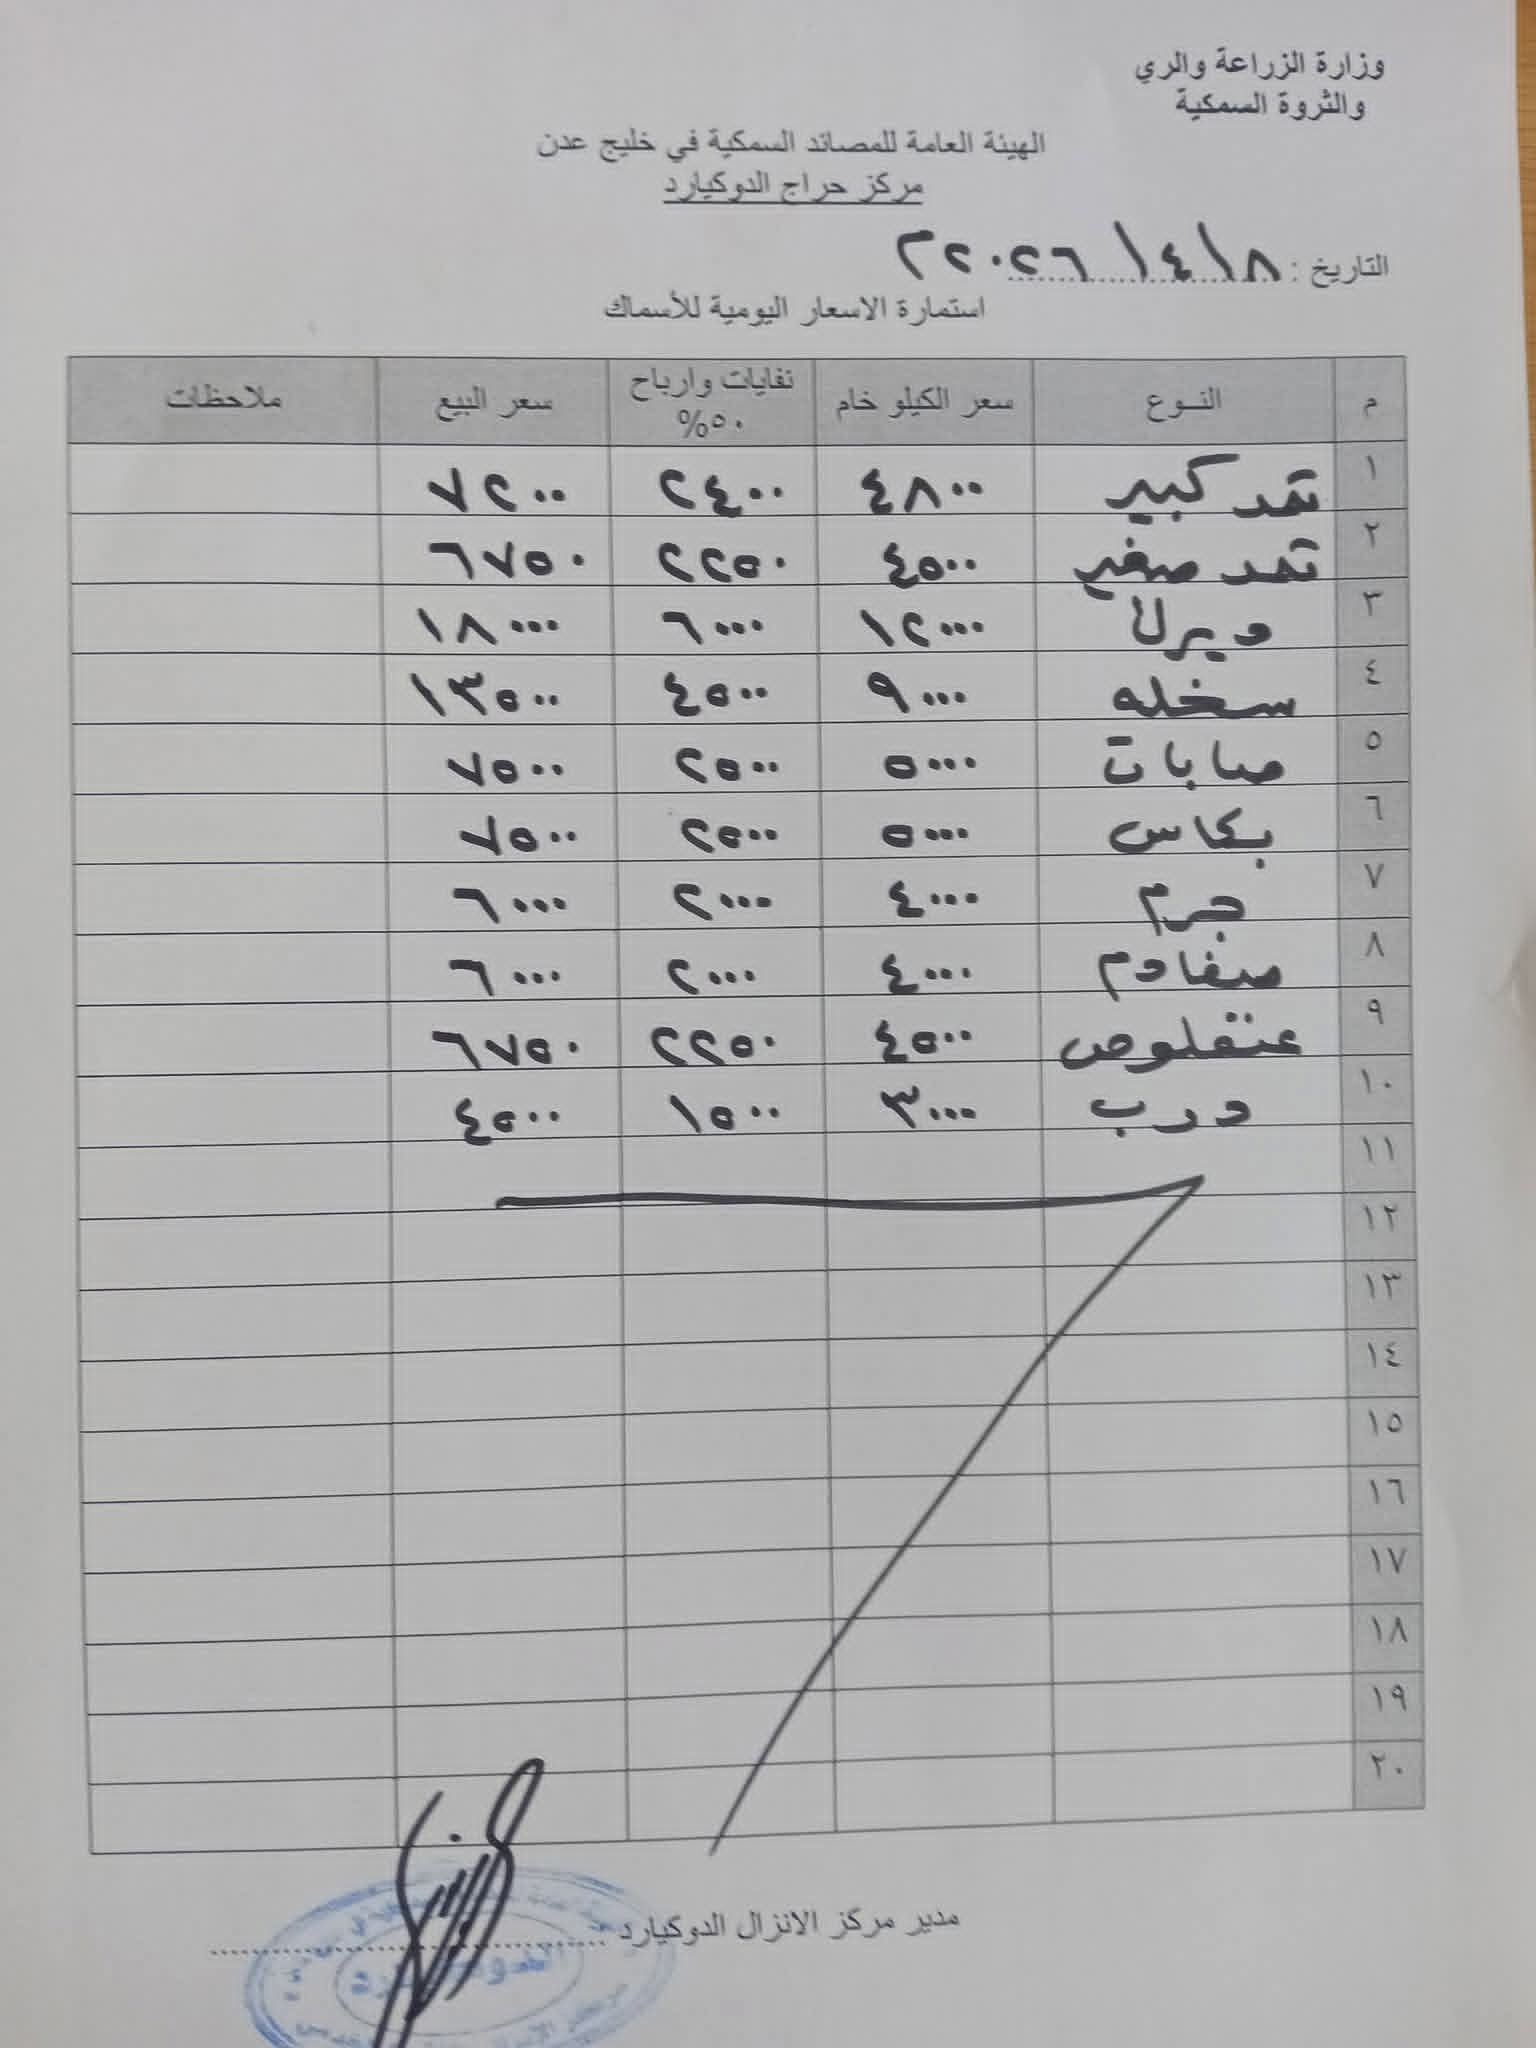 وزارة الزراعة والري
والثروة السمكية
الهيئة العامة للمصائد السمكية في خليج عدن
مركز حراج الدوكيارد
التاريخ : ١٨/٤/٢٠٢٦م
استمارة الاسعار اليومية للأسماك
م النـوع سعر الكيلو خام نفايات وارباح ٥٠% سعر البيع ملاحظات
١ ثمد كبير ٤٨٠٠ ٢٤٠٠ ٧٢٠٠
٢ ثمد صغير ٤٥٠٠ ٢٢٥٠ ٦٧٥٠
٣ ديرك ١٢٠٠٠ ٦٠٠٠ ١٨٠٠٠
٤ سخله ٩٠٠٠ ٤٥٠٠ ١٣٥٠٠
٥ صابات ٥٠٠٠ ٢٥٠٠ ٧٥٠٠
٦ بكاس ٥٠٠٠ ٢٥٠٠ ٧٥٠٠
٧ جرم ٤٠٠٠ ٢٠٠٠ ٦٠٠٠
٨ صفادم ٤٠٠٠ ٢٠٠٠ ٦٠٠٠
٩ عنفلوص ٤٥٠٠ ٢٢٥٠ ٦٧٥٠
١٠ درب ٣٠٠٠ ١٥٠٠ ٤٥٠٠
١١
١٢
١٣
١٤
١٥
١٦
١٧
١٨
١٩
٢٠
مدير مركز الانزال الدوكيارد